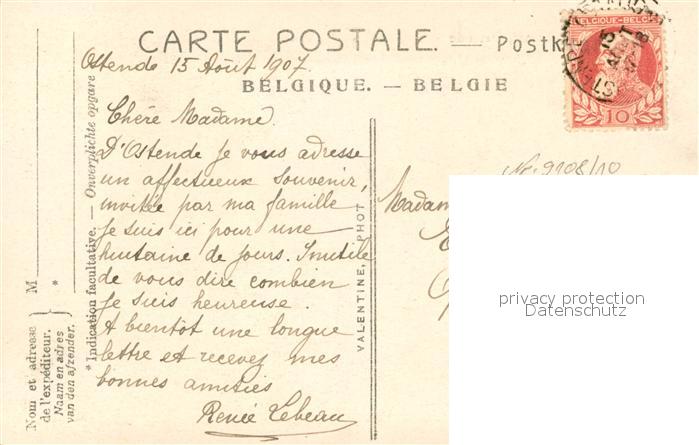 CARTE POSTALE. — Postk
Ostende 15 Août 1907.
BELGIQUE. — BELGIE
Chère Madame.
D'Ostende je vous adresse
un affectueux souvenir,
invitée par ma famille
je suis ici pour une
huitaine de jours. Inutile
de vous dire combien
je suis heureuse.
A bientôt une longue
lettre et recevez mes
bonnes amitiés
Renée Lebeau
Nom et adresse
de l'expéditeur.
Naam en adres
van den afzender.
M
*
*Indication facultative. — Onverplichte opgave
VALENTINE, PHOT
BELGIQUE-BELG
10
15
Nr. 9108/10
Madam
privacy protection
Datenschutz